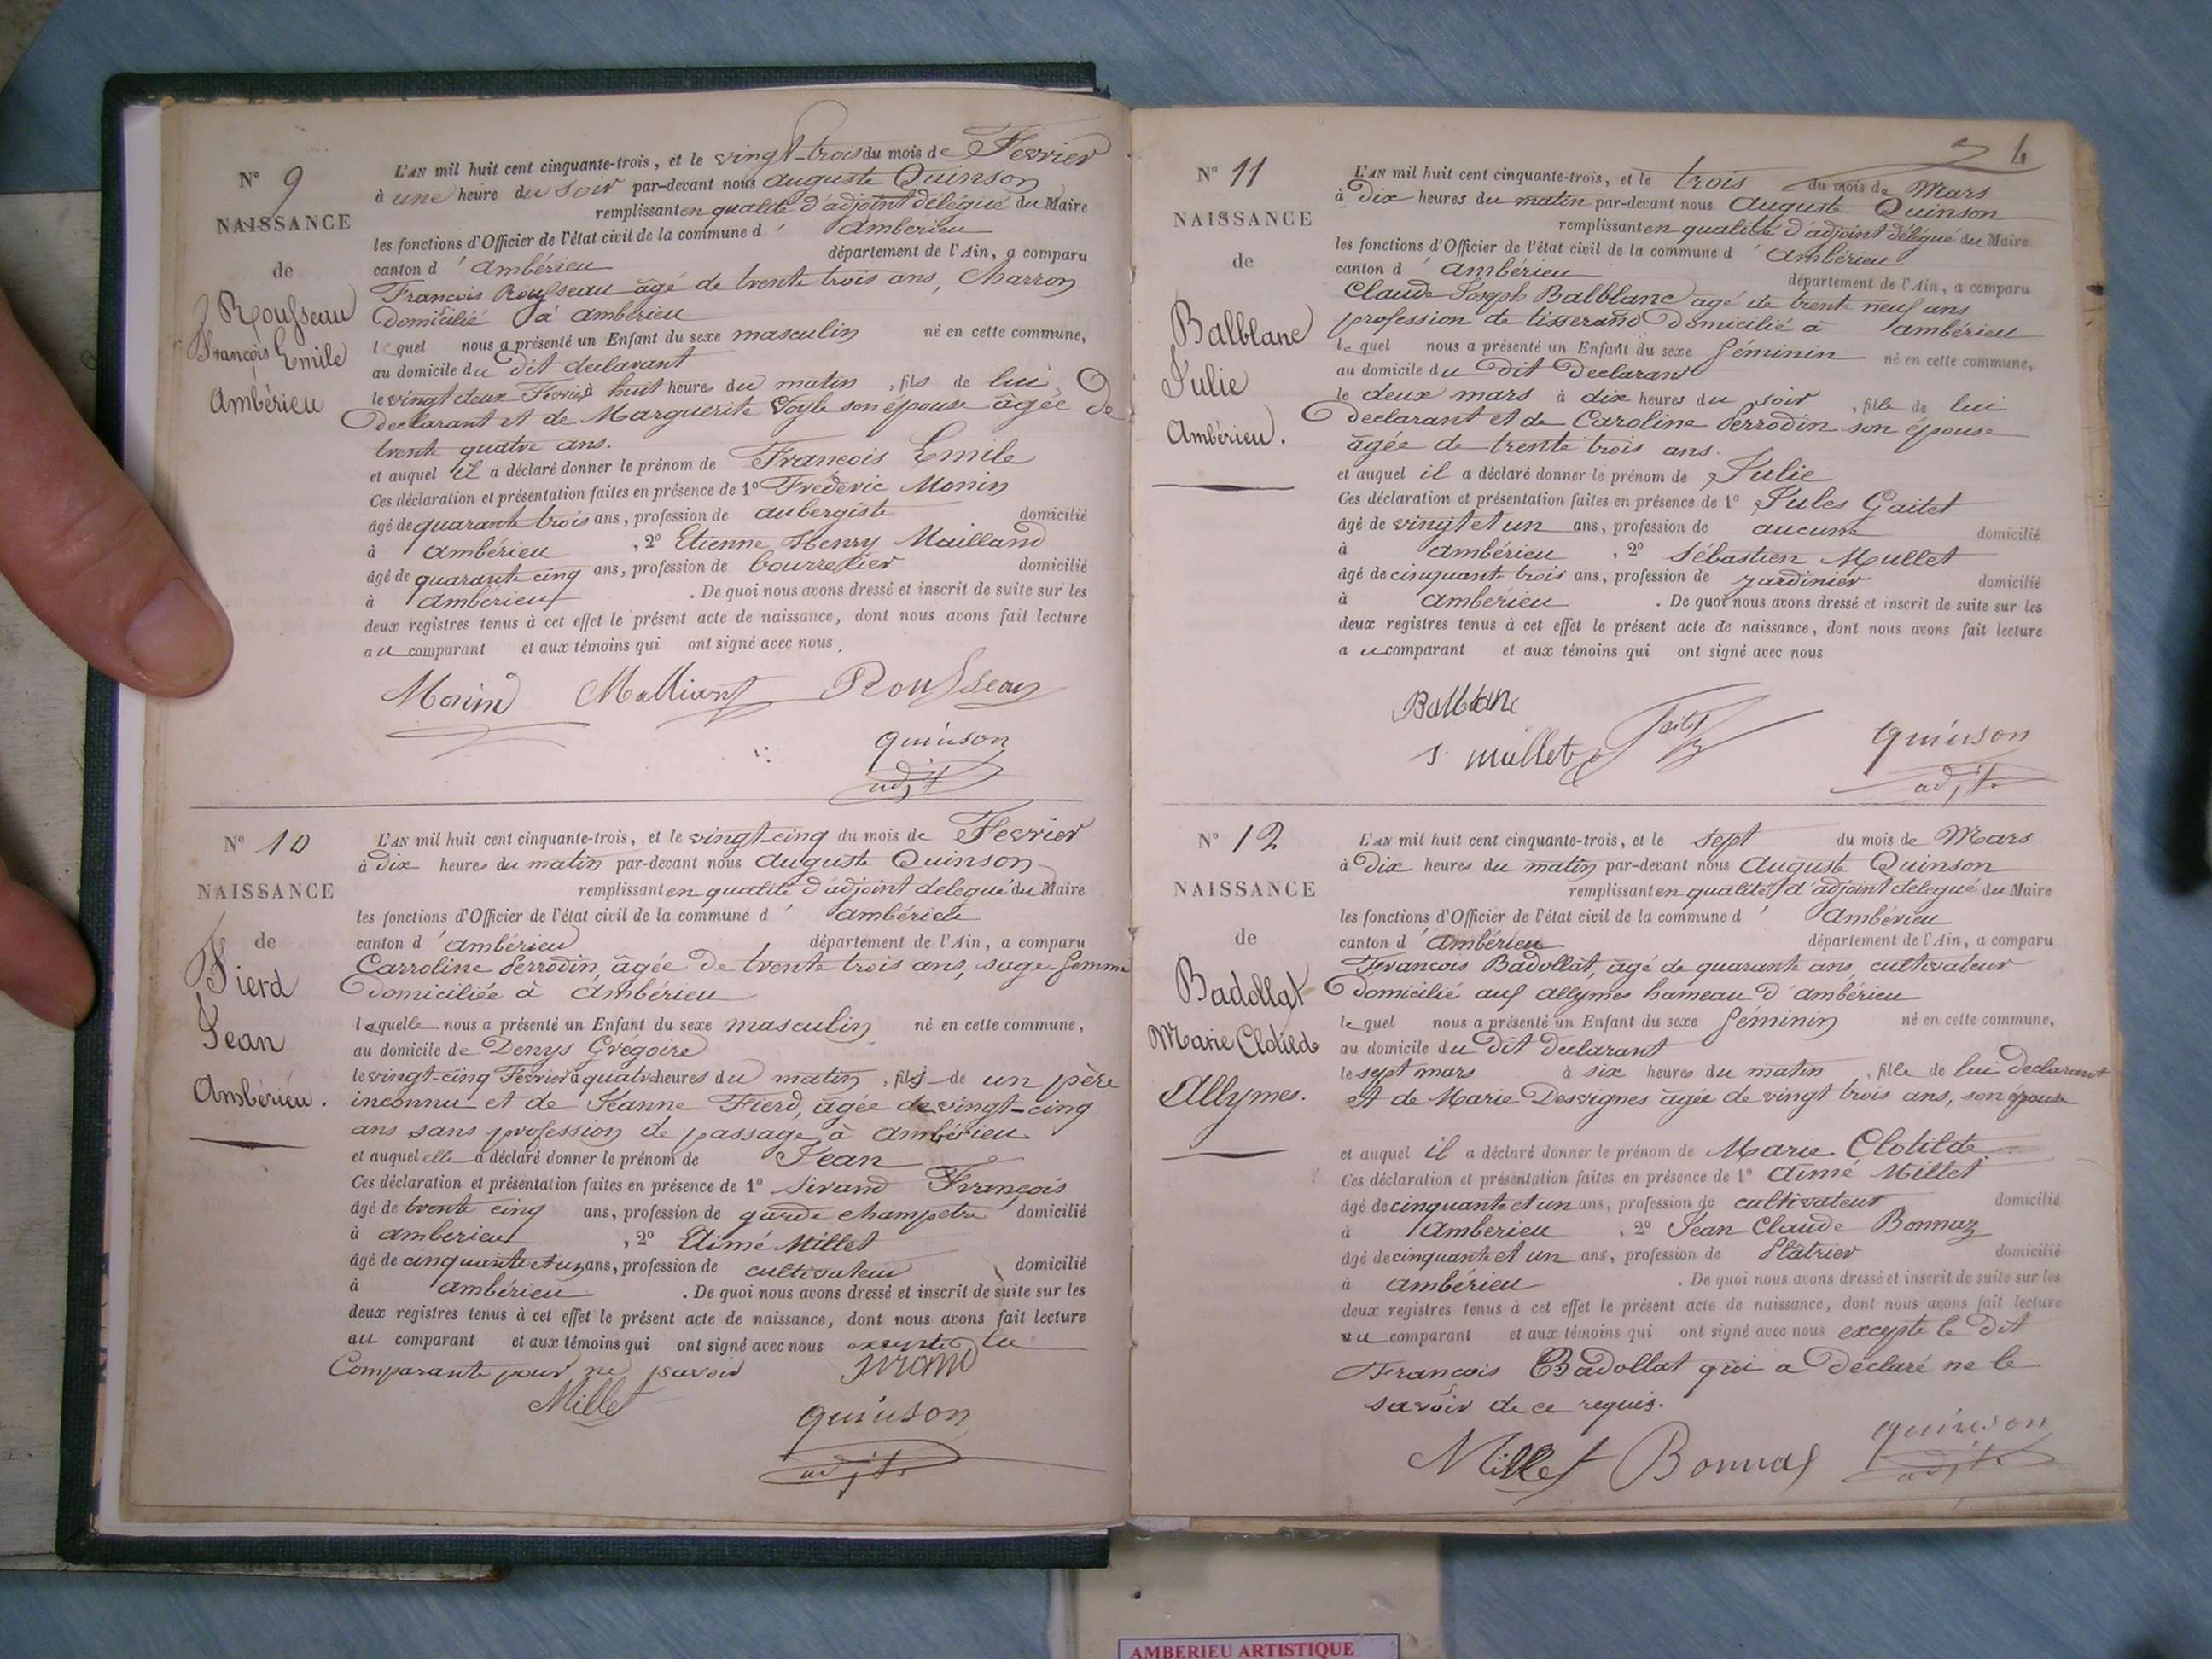 N° 9
NAISSANCE
de
Rousseau
François Emile
Ambérieu
L'AN mil huit cent cinquante-trois, et le vingt-trois du mois de Fevrier
à une heure du soir par-devant nous Auguste Quinson
remplissant en qualité d'adjoint délégué du Maire
les fonctions d'Officier de l'état civil de la commune d' Ambérieu
canton d' Ambérieu département de l'Ain, a comparu
François Rousseau âgé de trente trois ans, Charron
domicilié à Ambérieu
lequel nous a présenté un Enfant du sexe masculin né en cette commune,
au domicile du dit declarant
le vingt deux Fevrier à huit heures du matin, fils de lui
declarant et de Marguerite son épouse âgée de
trente quatre ans.
et auquel il a déclaré donner le prénom de François Emile
Ces déclaration et présentation faites en présence de 1° Frederic Monin
âgé de quarante trois ans, profession de aubergiste domicilié
à Ambérieu, 2° Etienne Henry Mailland
âgé de quarante cinq ans, profession de bourrelier domicilié
à Ambérieu. De quoi nous avons dressé et inscrit de suite sur les
deux registres tenus à cet effet le présent acte de naissance, dont nous avons fait lecture
au comparant et aux témoins qui ont signé avec nous.
Monin Rousseau
quinson
adjt
N° 10
NAISSANCE
de
Fierd
Jean
Ambérieu.
L'AN mil huit cent cinquante-trois, et le vingt-cinq du mois de Fevrier
à dix heures du matin par-devant nous Auguste Quinson
remplissant en qualité d'adjoint délégué du Maire
les fonctions d'Officier de l'état civil de la commune d' Ambérieu
canton d' Ambérieu département de l'Ain, a comparu
Carroline Perrodin, âgée de trente trois ans, sage-femme
domiciliée à Ambérieu
laquelle nous a présenté un Enfant du sexe masculin né en cette commune,
au domicile de Denys Grégoire
le vingt-cinq Fevrier à quatre heures du matin, fils de un père
inconnu et de Jeanne Fierd, âgée de vingt-cinq
ans sans profession de passage à Ambérieu
et auquel elle a déclaré donner le prénom de Jean
Ces déclaration et présentation faites en présence de 1° Sirand François
âgé de trente cinq ans, profession de garde champetre domicilié
à Amberieu, 2° Aimé Millet
âgé de cinquante et un ans, profession de cultivateur domicilié
à Ambérieu. De quoi nous avons dressé et inscrit de suite sur les
deux registres tenus à cet effet le présent acte de naissance, dont nous avons fait lecture
au comparant et aux témoins qui ont signé avec nous excepté la
Comparante pour ne savoir Sirand
Millet
quinson
adjt.
4
N° 11
NAISSANCE
de
Balblanc
Julie
Ambérieu.
L'AN mil huit cent cinquante-trois, et le trois du mois de Mars
à Dix heures du matin par-devant nous Auguste Quinson
remplissant en qualité d'adjoint délégué du Maire
les fonctions d'Officier de l'état civil de la commune d' Ambérieu
canton d' Ambérieu département de l'Ain, a comparu
Claude Joseph Balblanc âgé de trente neuf ans
profession de tisserand domicilié à Ambérieu
lequel nous a présenté un Enfant du sexe féminin né en cette commune,
au domicile du dit Declarant
le deux mars à dix heures du soir, fille de lui
declarant et de Caroline Perrodin son épouse
âgée de trente trois ans.
et auquel il a déclaré donner le prénom de Julie
Ces déclaration et présentation faites en présence de 1° Jules Gaitet
âgé de vingt et un ans, profession de aucune domicilié
à Ambérieu, 2° Sébastien Mullet
âgé de cinquante trois ans, profession de jardinier domicilié
à Ambérieu. De quoi nous avons dressé et inscrit de suite sur les
deux registres tenus à cet effet le présent acte de naissance, dont nous avons fait lecture
au comparant et aux témoins qui ont signé avec nous
Balblanc
s. mullet quinson
adjt.
N° 12
NAISSANCE
de
Badollat
Marie Clotilde
Allymes.
L'AN mil huit cent cinquante-trois, et le sept du mois de Mars
à Dix heures du matin par-devant nous Auguste Quinson
remplissant en qualité d'adjoint délégué du Maire
les fonctions d'Officier de l'état civil de la commune d' Ambérieu
canton d' Ambérieu département de l'Ain, a comparu
François Badollat, âgé de quarante ans, cultivateur
domicilié aux allymes hameau d'ambérieu
lequel nous a présenté un Enfant du sexe féminin né en cette commune,
au domicile du dit declarant
le sept mars à six heures du matin, fille de lui declarant
et de Marie Desvignes âgée de vingt trois ans, son épouse
et auquel il a déclaré donner le prénom de Marie Clotilde
Ces déclaration et présentation faites en présence de 1° Aimé Millet
âgé de cinquante et un ans, profession de cultivateur domicilié
à Amberieu, 2° Jean Claude Bonnaz
âgé de cinquante et un ans, profession de Plâtrier domicilié
à Ambérieu. De quoi nous avons dressé et inscrit de suite sur les
deux registres tenus à cet effet le présent acte de naissance, dont nous avons fait lecture
au comparant et aux témoins qui ont signé avec nous excepté le dit
François Badollat qui a déclaré ne le
savoir de ce requis.
Millet Bonnaz quinson
adjt.
AMBERIEU ARTISTIQUE